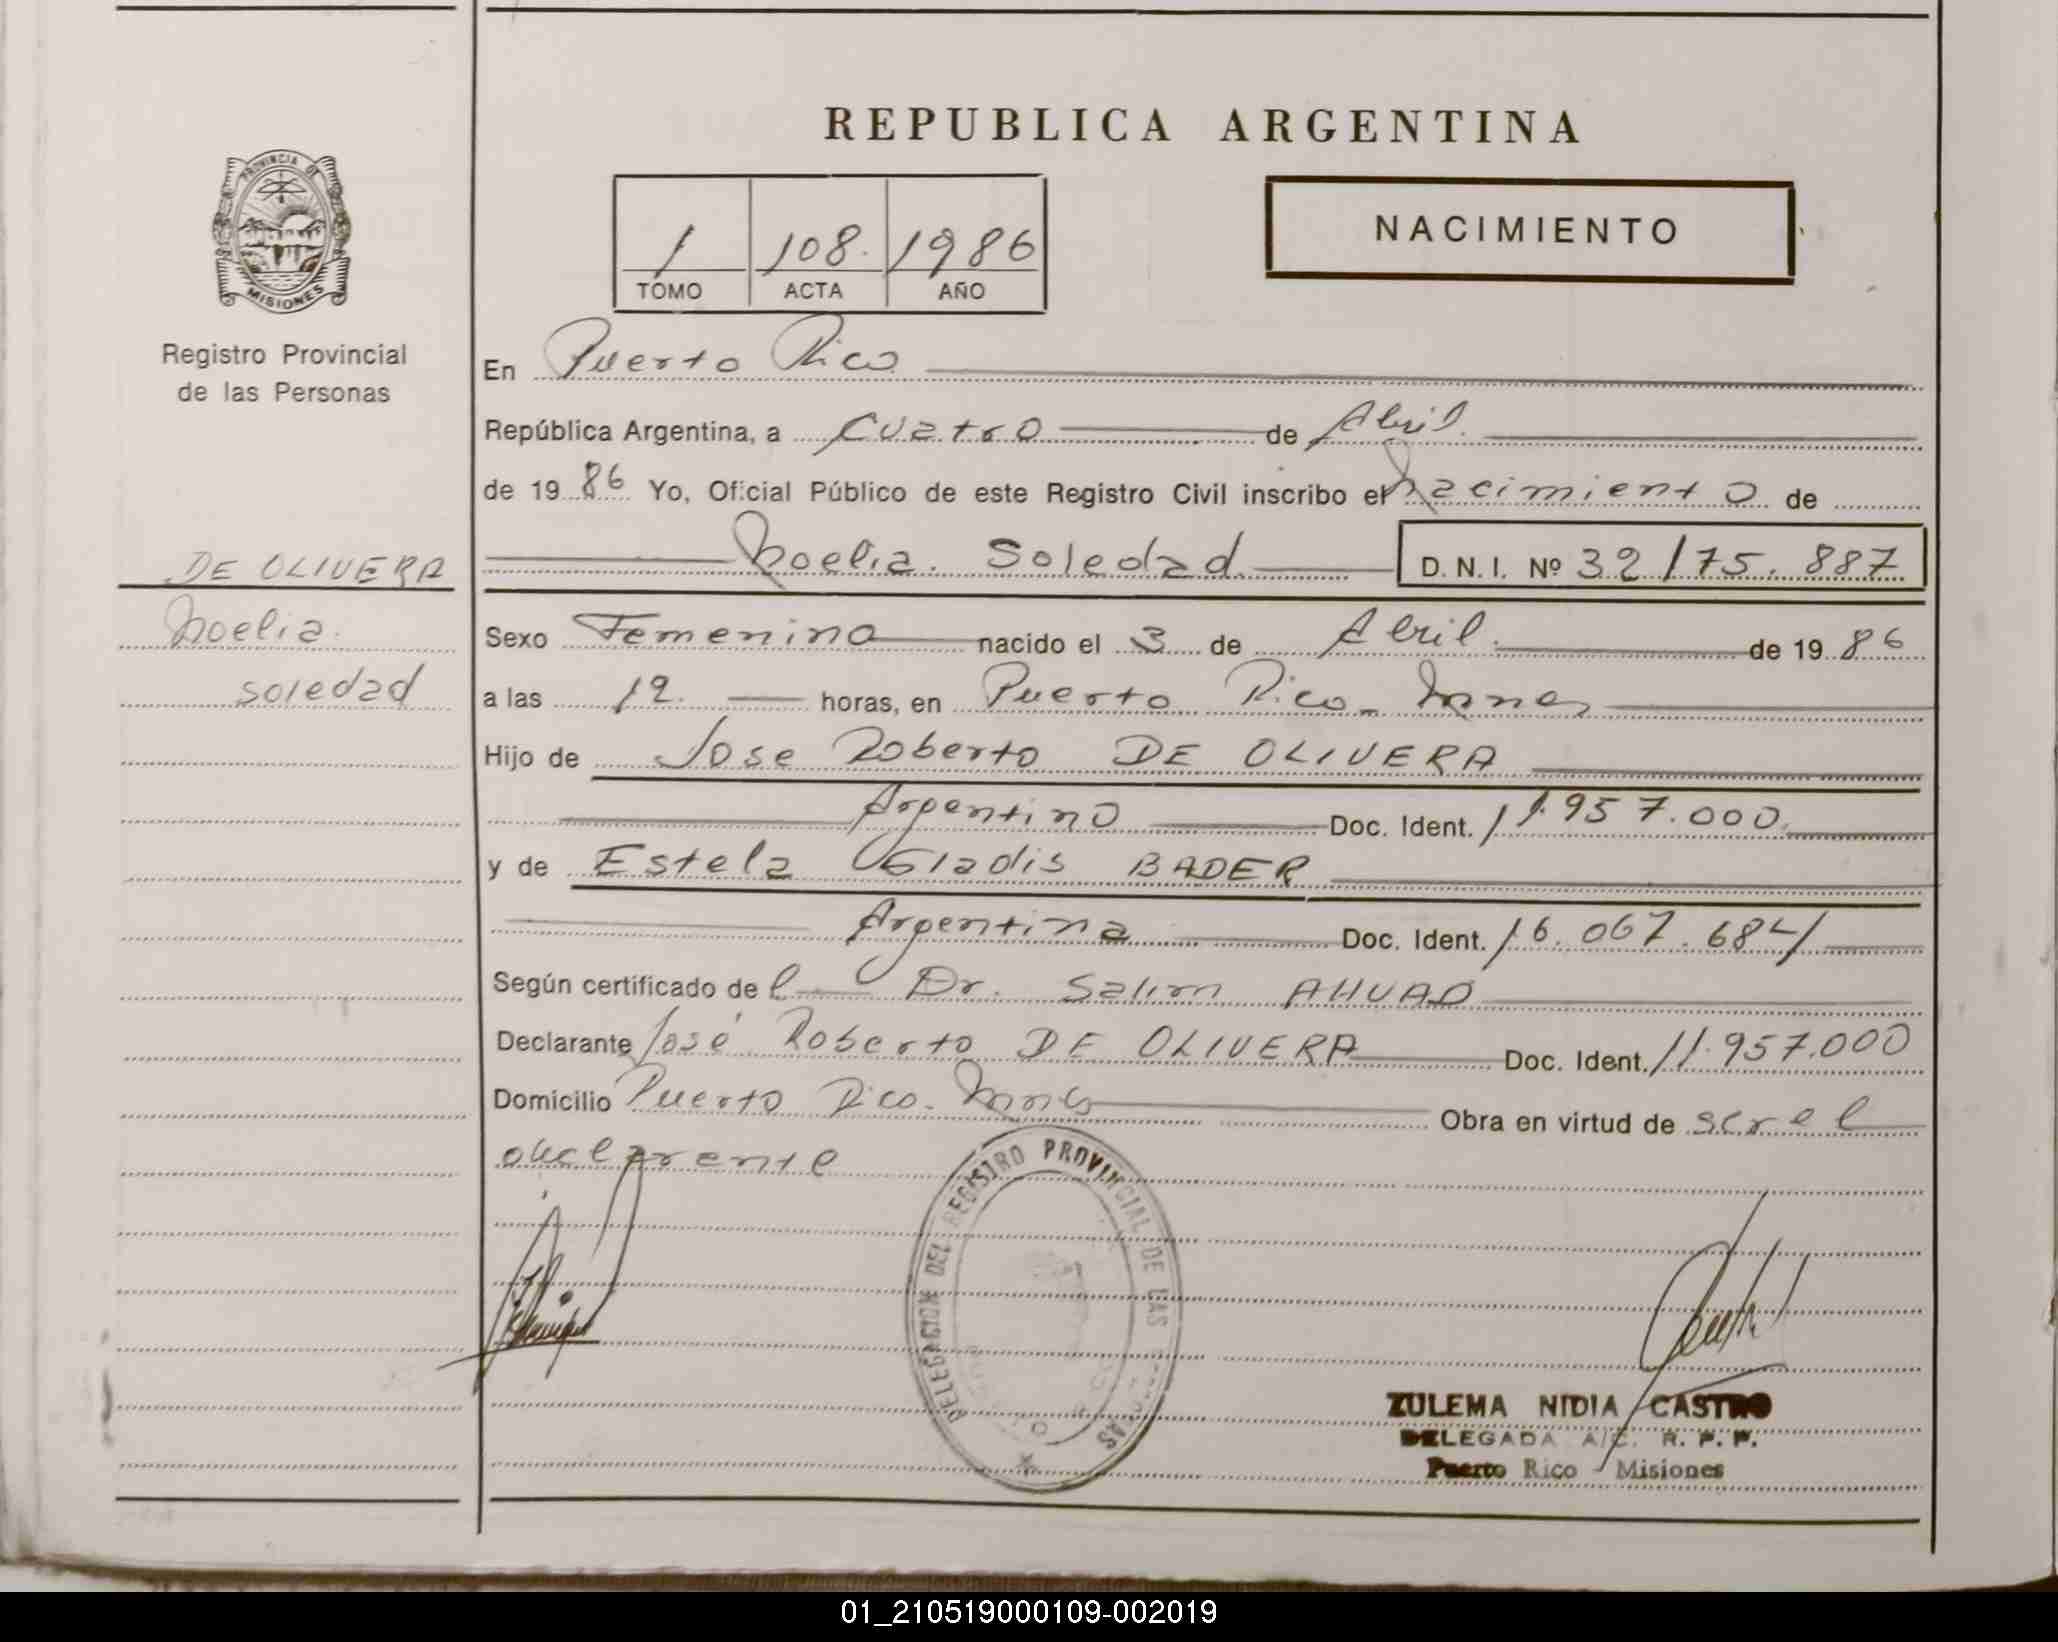 REPUBLICA ARGENTINA
PROVINCIA DE
MISIONES
Registro Provincial
de las Personas
1 108. 1986
TOMO ACTA AÑO
NACIMIENTO
En Puerto Rico
República Argentina, a Cuatro de Abril.
de 1986 Yo, Oficial Público de este Registro Civil inscribo el nacimiento de
Noelia. Soledad D. N. I. Nº 32175.887
DE OLIVERA
Noelia.
soledad
Sexo Femenino nacido el 3 de Abril. de 1986
a las 12. horas, en Puerto Rico- Mnes
Hijo de Jose Roberto DE OLIVERA
Argentino Doc. Ident. 11.957.000.
y de Estela Gladis BADER
Argentina Doc. Ident. 16.067.684
Según certificado del Dr. Salim AHUAD
Declarante José Roberto DE OLIVERA Doc. Ident. 11.957.000
Domicilio Puerto Rico- Mnes Obra en virtud de ser el
declarante
DELEGACION DEL REGISTRO PROVINCIAL DE LAS
ZULEMA NIDIA CASTRO
DELEGADA A/C. R. P. P.
Puerto Rico - Misiones
01_210519000109-002019